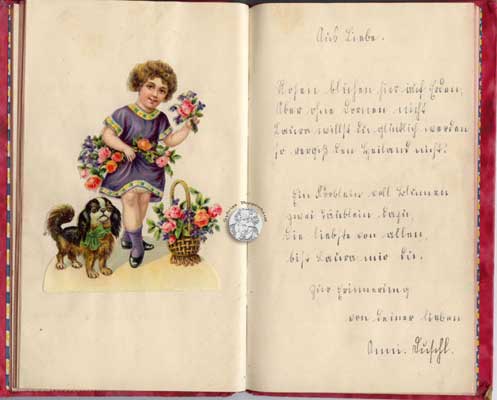 Aus Liebe.
Rosen blühen hier auf Erden,
Aber ohne Dornen nicht
Laura willst du glücklich werden
so vergiß den Heiland nicht.
Ein Körblein voll Blumen
zwei Täublein dazu,
die liebste von allen,
bist Laura mir du.
Zur Erinnerung
von deiner lieben
Anni. Duschl.